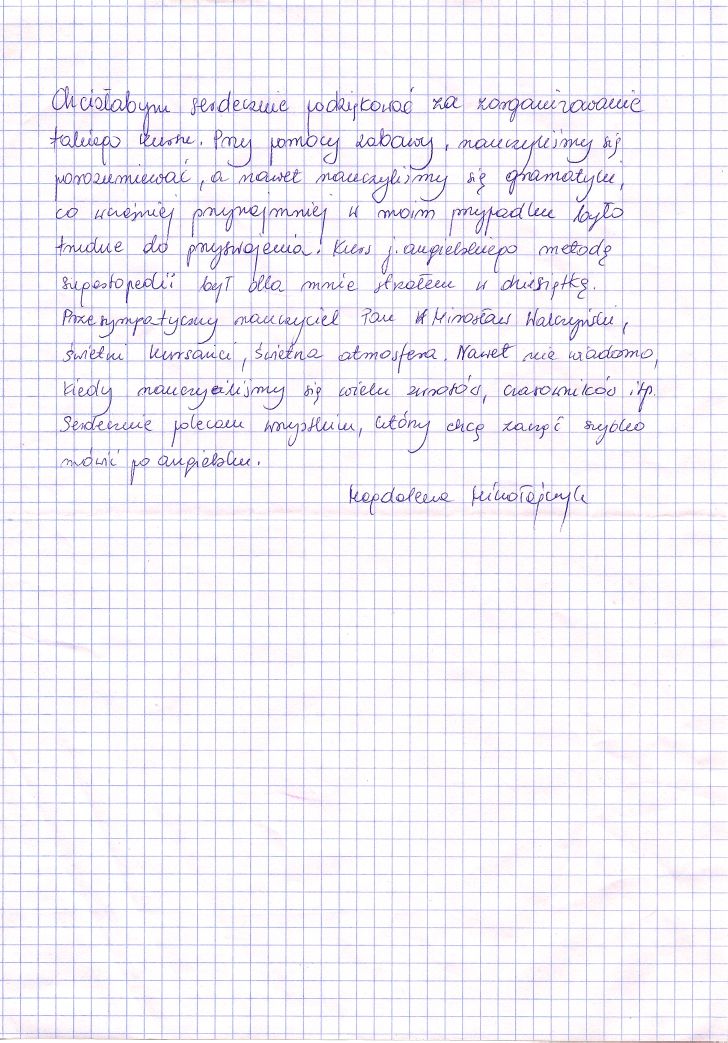 Chciałabym serdecznie podziękować za zorganizowanie
takiego kursu. Przy pomocy zabawy, nauczyliśmy się
porozumiewać, a nawet nauczyliśmy się gramatyki,
co wcześniej przynajmniej w moim przypadku było
trudne do przyswojenia. Kurs j. angielskiego metodą
sugestopedii był dla mnie strzałem w dziesiątkę.
Przesympatyczny nauczyciel Pan Mirosław Walczyński,
świetni kursanci, świetna atmosfera. Nawet nie wiadomo,
kiedy nauczyliśmy się wielu zwrotów, czasowników itp.
Serdecznie polecam wszystkim, którzy chcą zacząć szybko
mówić po angielsku.
Magdalena Mikołajczyk